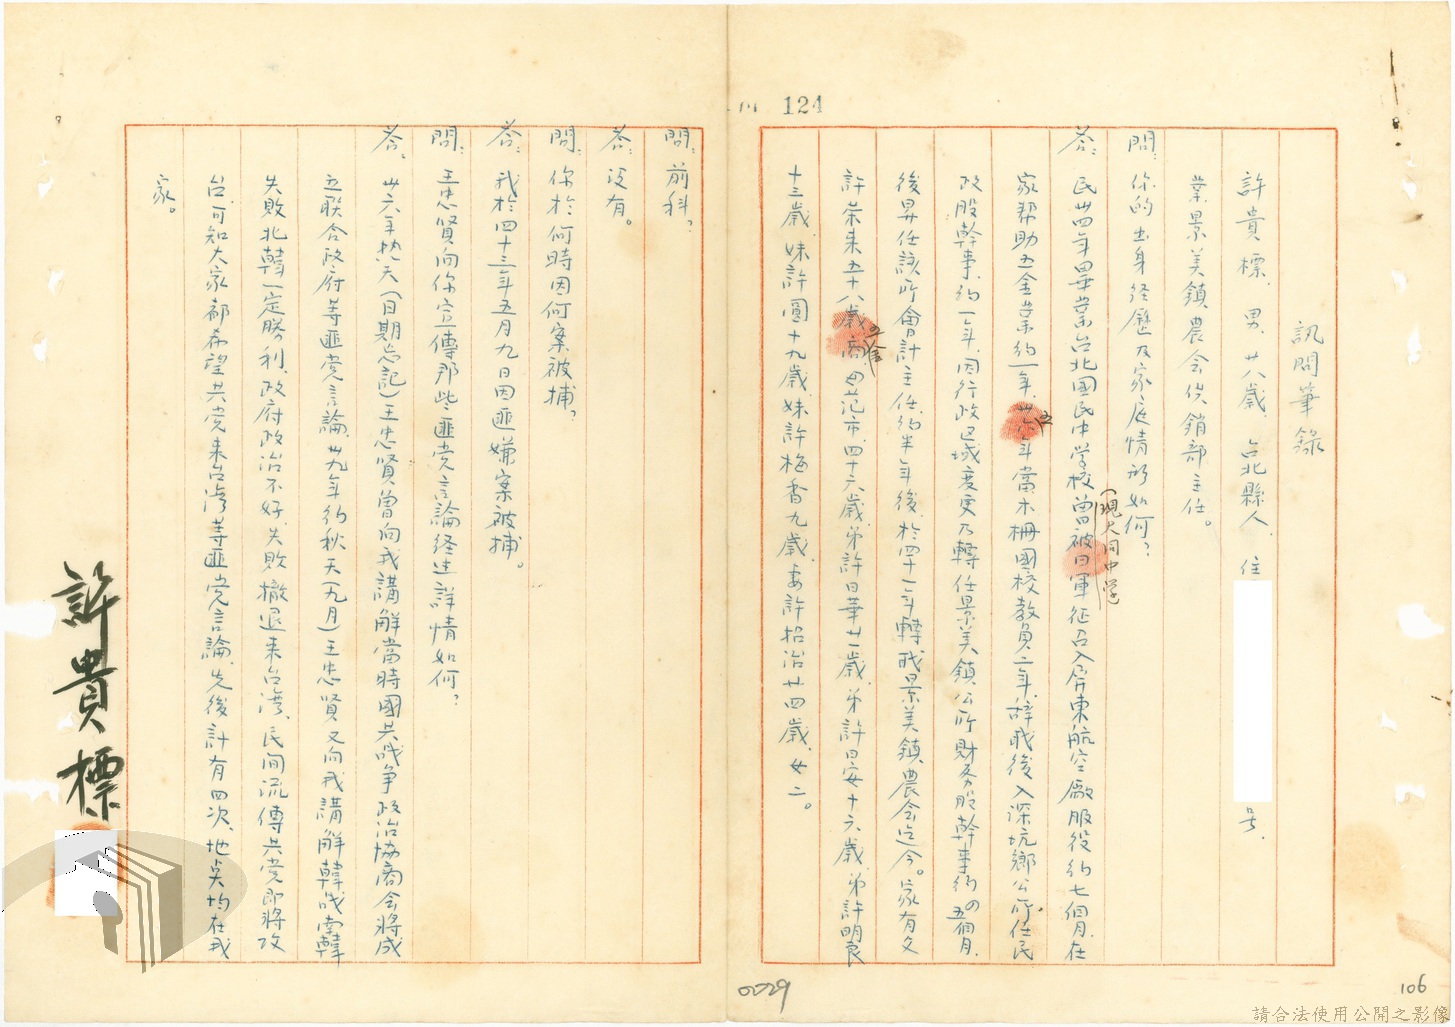 124
訊問筆錄
許貴標、男、廿八歲、台北縣人、住
号、
業景美鎮農会供銷部主任。
問:你的出身経歷及家庭情形如何?
答:民卅四年畢業台北國民中学校曾被日軍征召入屏東航空廠服役約七個月、在
(現大同中学)
家帮助五金業約一年、卅六年當木柵國校教員二年、辞職後入深坑鄉公所任民
五
政股幹事、約一年、因行政区域変更乃轉任景美鎮公所財務股幹事約五個月、
後昇任該所會計主任、約半年後、於四十一年轉職景美鎮農会迄今。家有父
許荣来五十八歲、商、母范市、四十六歲、弟許日華廿一歲、弟許日安十六歲、弟許明良
十三歲、妹許圓十九歲、妹許梅香九歲、妻許招治廿四歲、女二。
問:前科?
答:沒有。
問:你於何時因何案被捕?
答:我於四十三年五月九日因匪嫌案被捕。
問:王忠賢向你宣傳那些匪党言論経过詳情如何?
答、卅六年热天(日期忘記)王忠賢曾向我講解當時國共战争政治協商会将成
立联合政府等匪党言論、卅九年約秋天(九月)王忠賢又向我講解韓战、南韓
失敗北韓一定勝利、政府政治不好、失敗撤退来台湾、民间流傳共党即将攻
台、可知大家都希望共党来台湾等匪党言論、先後計有四次、地点均在我
家。
許貴標
02729
106
請合法使用公開之影像